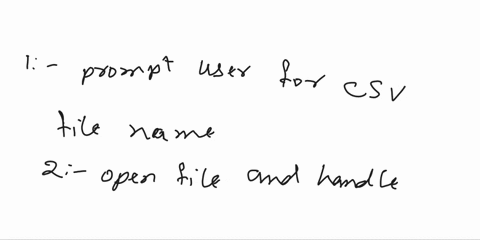 1:- prompt user for CSV
file name
2:- open file and handle